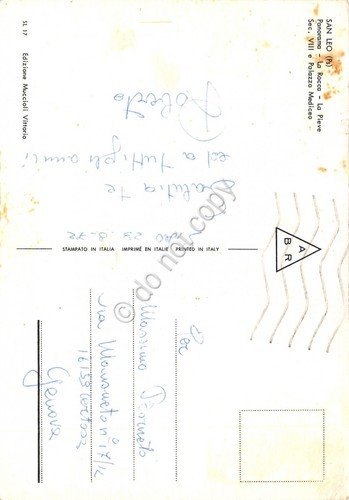 SAN LEO (Ps)
Panorama - La Rocca - La Pieve
Sec. VIII e Palazzo Mediceo
SL 17 Edizione Moccioli Vittorio
STAMPATO IN ITALIA IMPRIMÉ EN ITALIE PRINTED IN ITALY
A
B R
Saluti a te
ed a tutti gli amici
Roberto
Per
Massimo
Via n° 17/12
16158
Genova
do not copy